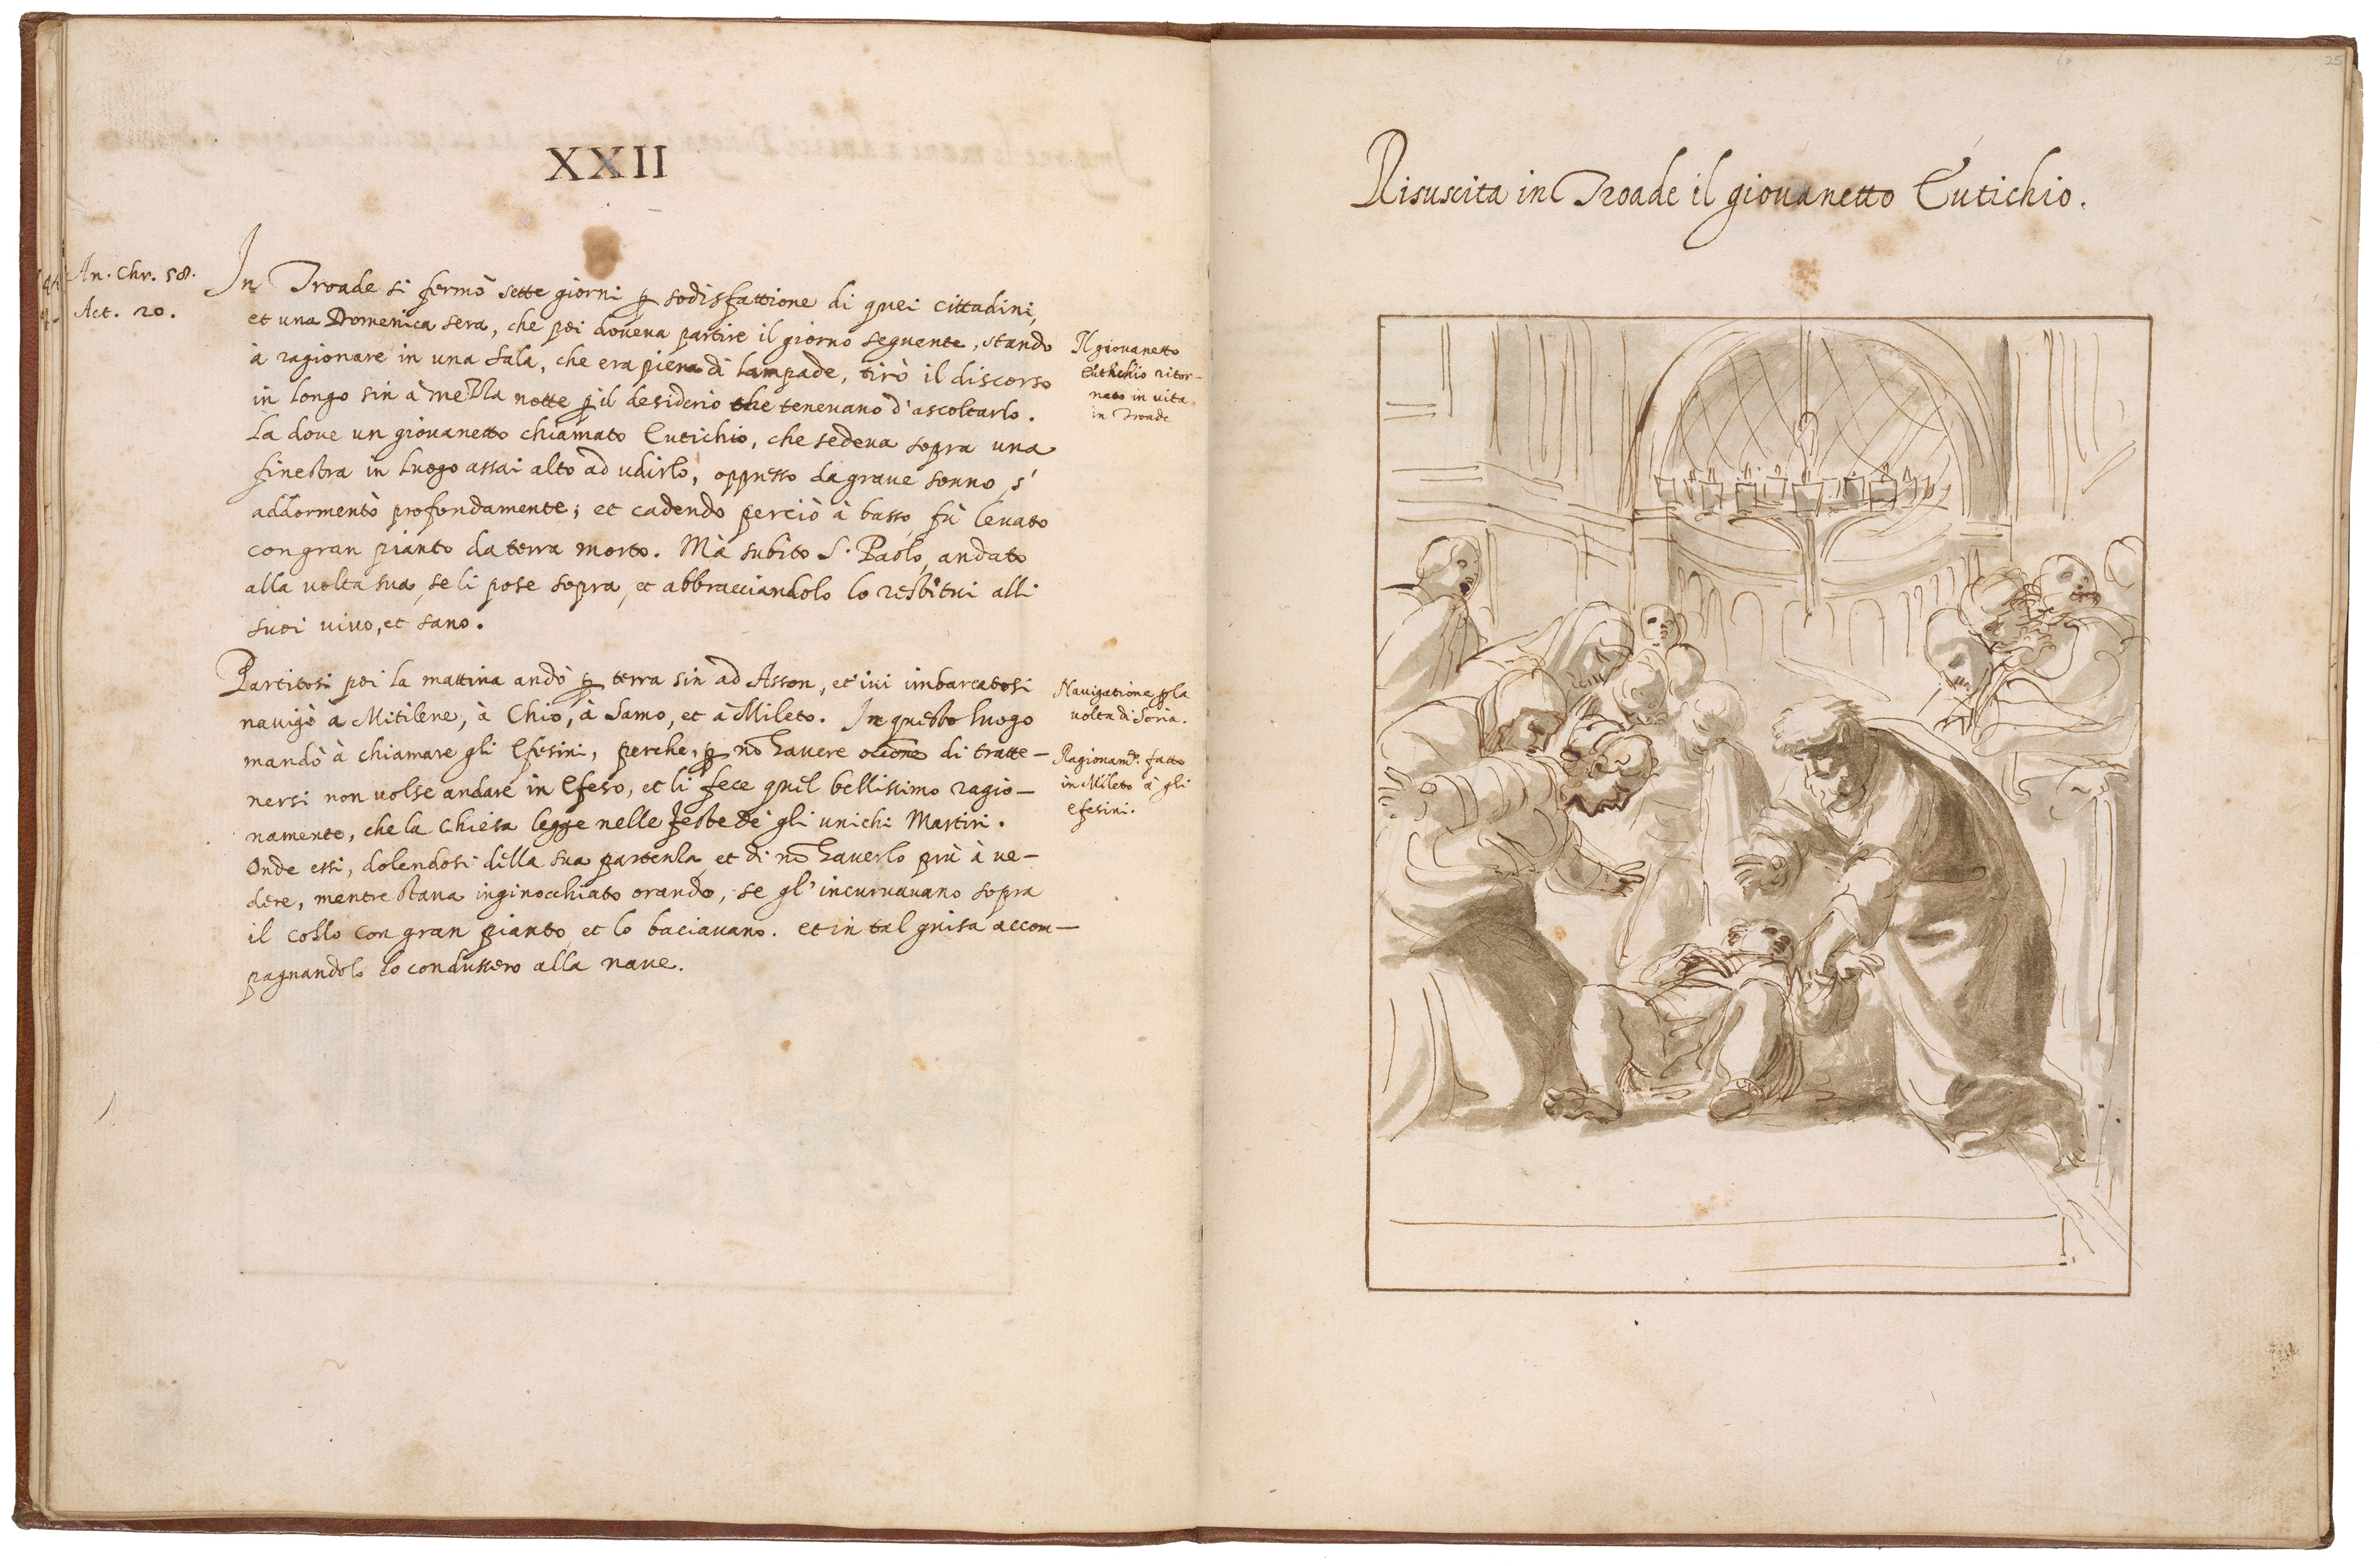 XXII
An. Chr. 58.
Act. 20.
In Troade si fermò sette giorni p sodisfattione di quei cittadini,
et una Domenica sera, che poi doueua partire il giorno seguente, stando
à ragionare in una sala, che era piena di lampade, tirò il discorso
in longo sin à mezza notte p il desiderio che teneuano d'ascoltarlo.
La doue un giouanetto chiamato Eutichio, che sedeua sopra una
finestra in luogo assai alto ad udirlo, oppresso da graue sonno s'
addormentò profondamente; et cadendo perciò à basso, fù leuato
con gran pianto da terra morto. Mà subito S. Paolo, andato
alla uolta sua, se li pose sopra, et abbracciandolo lo restitui alli
suoi uiuo, et sano.
Il giouanetto
Eutichio ritor-
nato in uita
in Troade
Partitosi poi la mattina andò p terra sin ad Asson, et iui imbarcatosi
nauigò a Mitilene, à Chio, à Samo, et à Mileto. In questo luogo
mandò à chiamare gli Efesini, perche, p nō hauere occōne di tratte-
nersi non uolse andare in Efeso, et li fece quel bellissimo ragio-
namento, che la Chiesa legge nelle feste de gli unichi Martiri.
Onde essi, dolendosi della sua partenza, et di nō hauerlo più à ue-
dere, mentre staua inginocchiato orando, se gl'incuruauano sopra
il collo con gran pianto, et lo baciauano. et in tal guisa accom-
pagnandolo lo condussero alla naue.
Nauigatione p la
uolta di Soria.
Ragionam.to fatto
in Mileto à gli
Efesini.
25
Risuscita in Troade il giouanetto Eutichio.